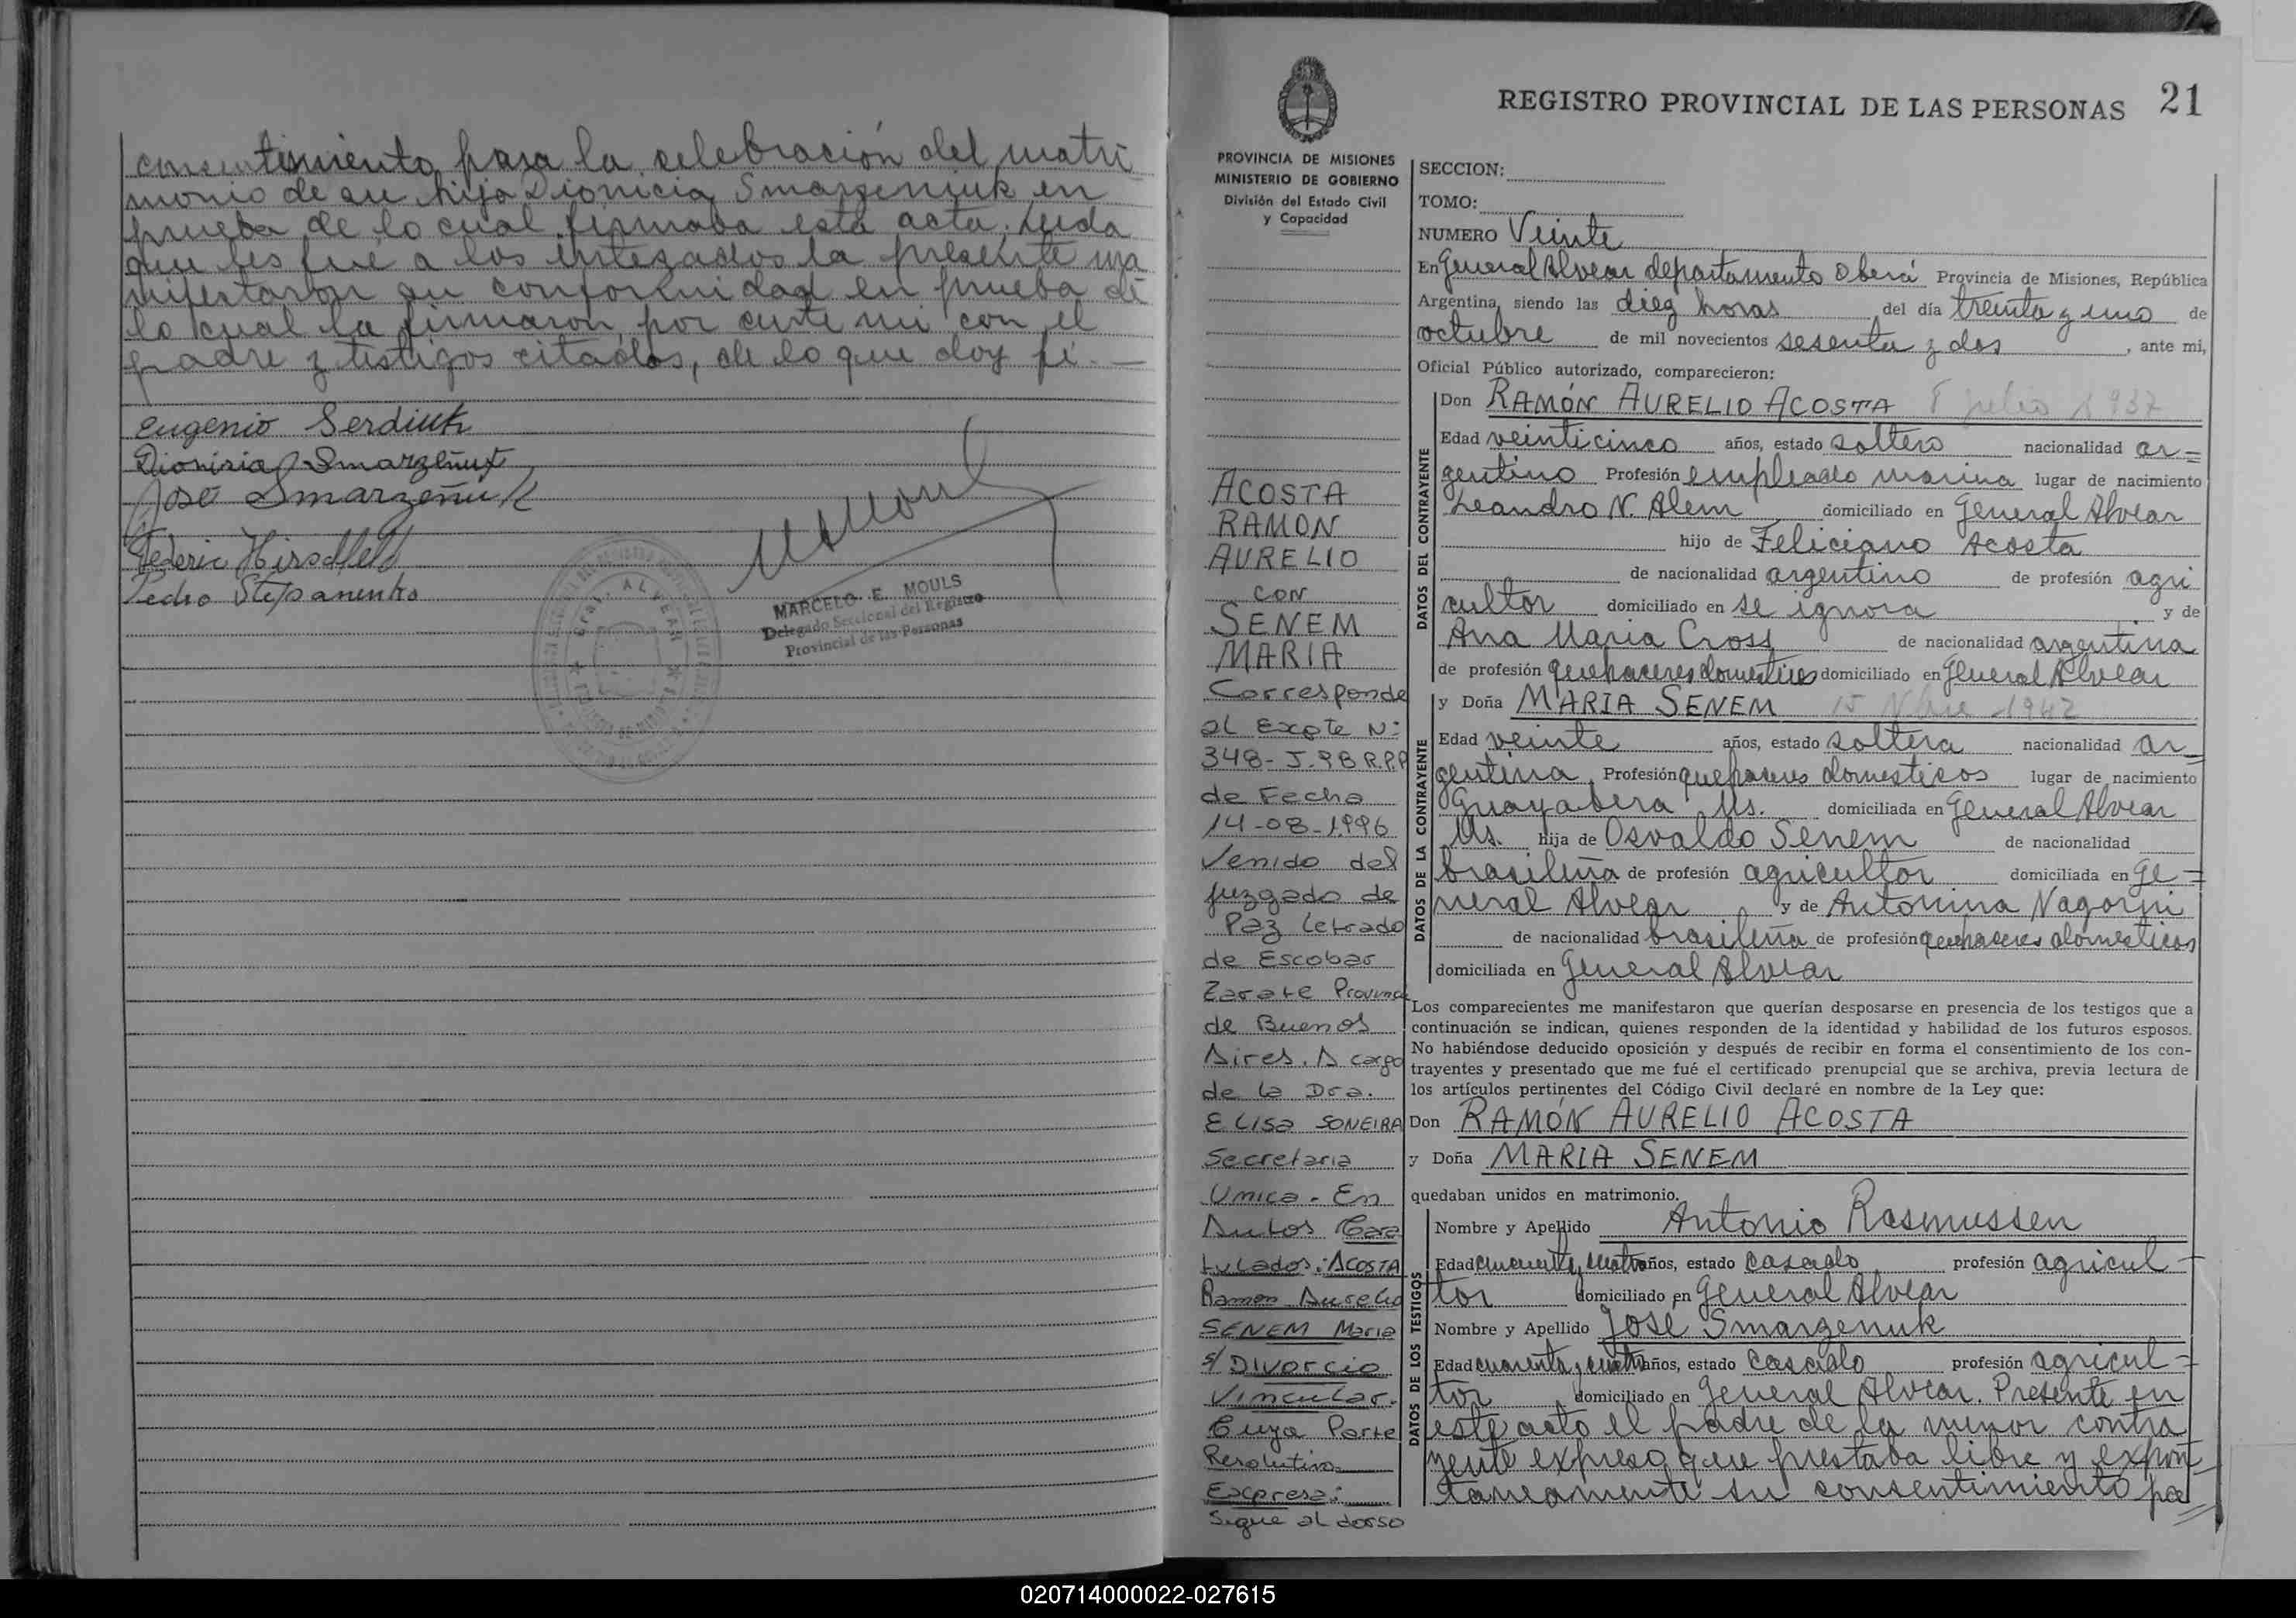 consentimiento para la celebración del matri
monio de su hija Dionicia Smarzeniuk en
prueba de lo cual firmaba esta acta. Leida
que les fué a los intezados la presente ma
nifestaron su conformidad en prueba de
lo cual la firmaron por ante mi con el
padre y testigos citados, de lo que doy fé.—
Eugenio Serdiuk
Dionisia Smarzeñuk
José Smarzeñuk
Federic Hirschfeld
Pedro Stepanenko
Gral. ALVEAR
MARCELO E. MOULS
Delegado Seccional del Registro
Provincial de las Personas
REGISTRO PROVINCIAL DE LAS PERSONAS 21
PROVINCIA DE MISIONES
MINISTERIO DE GOBIERNO
División del Estado Civil
y Capacidad
ACOSTA
RAMON
AURELIO
con
SENEM
MARIA
Corresponde
al Expte N:
348-J.98 R.P.P
de Fecha
14-08-1996
Venido del
juzgado de
Paz Letrado
de Escobar
Zarate Provinci
de Buenos
Aires. A cargo
de la Dra.
ELISA SONEIRA
Secretaria
Unica. En
Autos Cara
tulados: ACOSTA
Ramon Aurelio
SENEM Maria
s/ DIVORCIO
Vincular.
Cuya Parte
Resolutiva
Expresa:
Sigue al dorso
SECCION:
TOMO:
NUMERO Veinte
En General Alvear departamento Oberá Provincia de Misiones, República
Argentina, siendo las diez horas del día treinta y uno de
octubre de mil novecientos sesenta y dos, ante mi,
Oficial Público autorizado, comparecieron:
DATOS DEL CONTRAYENTE
Don RAMÓN AURELIO ACOSTA 8 julio 1937
Edad veinticinco años, estado soltero nacionalidad ar=
gentino Profesión empleado marina lugar de nacimiento
Leandro N. Alem domiciliado en General Alvear
hijo de Feliciano Acosta
de nacionalidad argentino de profesión agri
cultor domiciliado en se ignora y de
Ana Maria Cross de nacionalidad argentina
de profesión quehaceres domesticos domiciliado en General Alvear
DATOS DE LA CONTRAYENTE
y Doña MARIA SENEM 15 Nbre 1942
Edad veinte años, estado soltera nacionalidad ar=
gentina Profesión quehaceres domesticos lugar de nacimiento
Guayabera Ms. domiciliada en General Alvear
Ms. hija de Osvaldo Senem de nacionalidad
brasileña de profesión agricultor domiciliada en Ge=
neral Alvear y de Antonina Nagorni
de nacionalidad brasileña de profesión quehaceres domesticos
domiciliada en General Alvear
Los comparecientes me manifestaron que querían desposarse en presencia de los testigos que a
continuación se indican, quienes responden de la identidad y habilidad de los futuros esposos.
No habiéndose deducido oposición y después de recibir en forma el consentimiento de los con-
trayentes y presentado que me fué el certificado prenupcial que se archiva, previa lectura de
los artículos pertinentes del Código Civil declaré en nombre de la Ley que:
Don RAMÓN AURELIO ACOSTA
y Doña MARIA SENEM
quedaban unidos en matrimonio.
DATOS DE LOS TESTIGOS
Nombre y Apellido Antonio Rasmussen
Edad cincuenta y cuatro años, estado casado profesión agricul=
tor domiciliado en General Alvear
Nombre y Apellido José Smarzenuk
Edad cuarenta y cuatro años, estado casado profesión agricul=
tor domiciliado en General Alvear. Presente en
este acto el padre de la menor contra
yente expresó que prestaba libre y expon
taneamente su consentimiento pa
020714000022-027615